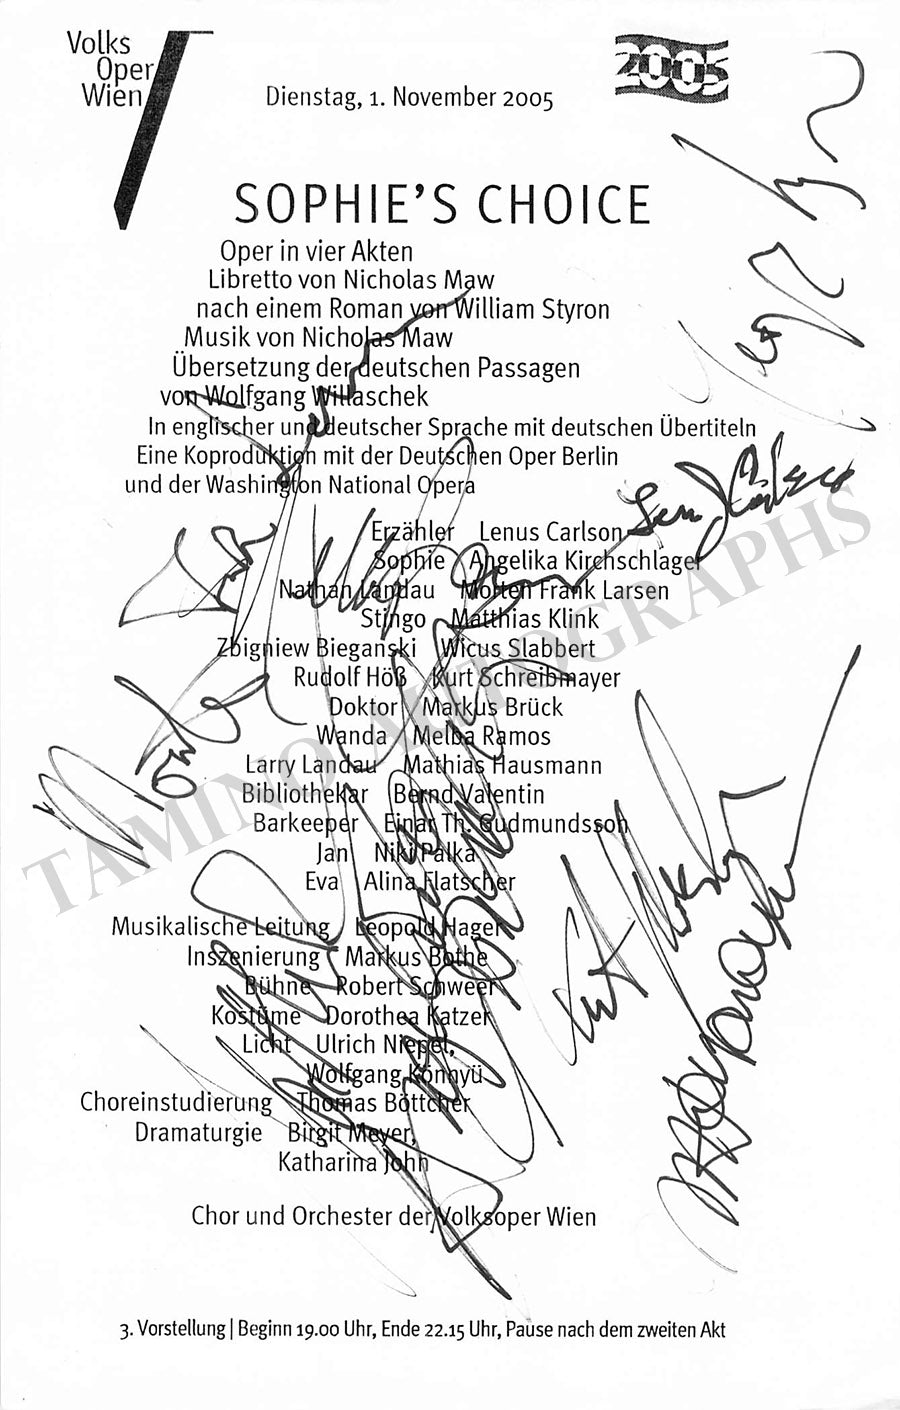 Volks
Oper
Wien
2005
Dienstag, 1. November 2005
SOPHIE'S CHOICE
Oper in vier Akten
Libretto von Nicholas Maw
nach einem Roman von William Styron
Musik von Nicholas Maw
Übersetzung der deutschen Passagen
von Wolfgang Willaschek
In englischer und deutscher Sprache mit deutschen Übertiteln
Eine Koproduktion mit der Deutschen Oper Berlin
und der Washington National Opera
Erzähler Lenus Carlson
Sophie Angelika Kirchschlager
Nathan Landau Morten Frank Larsen
Stingo Matthias Klink
Zbigniew Bieganski Wicus Slabbert
Rudolf Höß Kurt Schreibmayer
Doktor Markus Brück
Wanda Melba Ramos
Larry Landau Mathias Hausmann
Bibliothekar Bernd Valentin
Barkeeper Einar Th. Gudmundsson
Jan Niki Palka
Eva Alina Flatscher
Musikalische Leitung Leopold Hager
Inszenierung Markus Bothe
Bühne Robert Schweer
Kostüme Dorothea Katzer
Licht Ulrich Niepel,
Wolfgang Könnyü
Choreinstudierung Thomas Böttcher
Dramaturgie Birgit Meyer,
Katharina John
Chor und Orchester der Volksoper Wien
3. Vorstellung | Beginn 19.00 Uhr, Ende 22.15 Uhr, Pause nach dem zweiten Akt
TAMINO AUTOGRAPHS